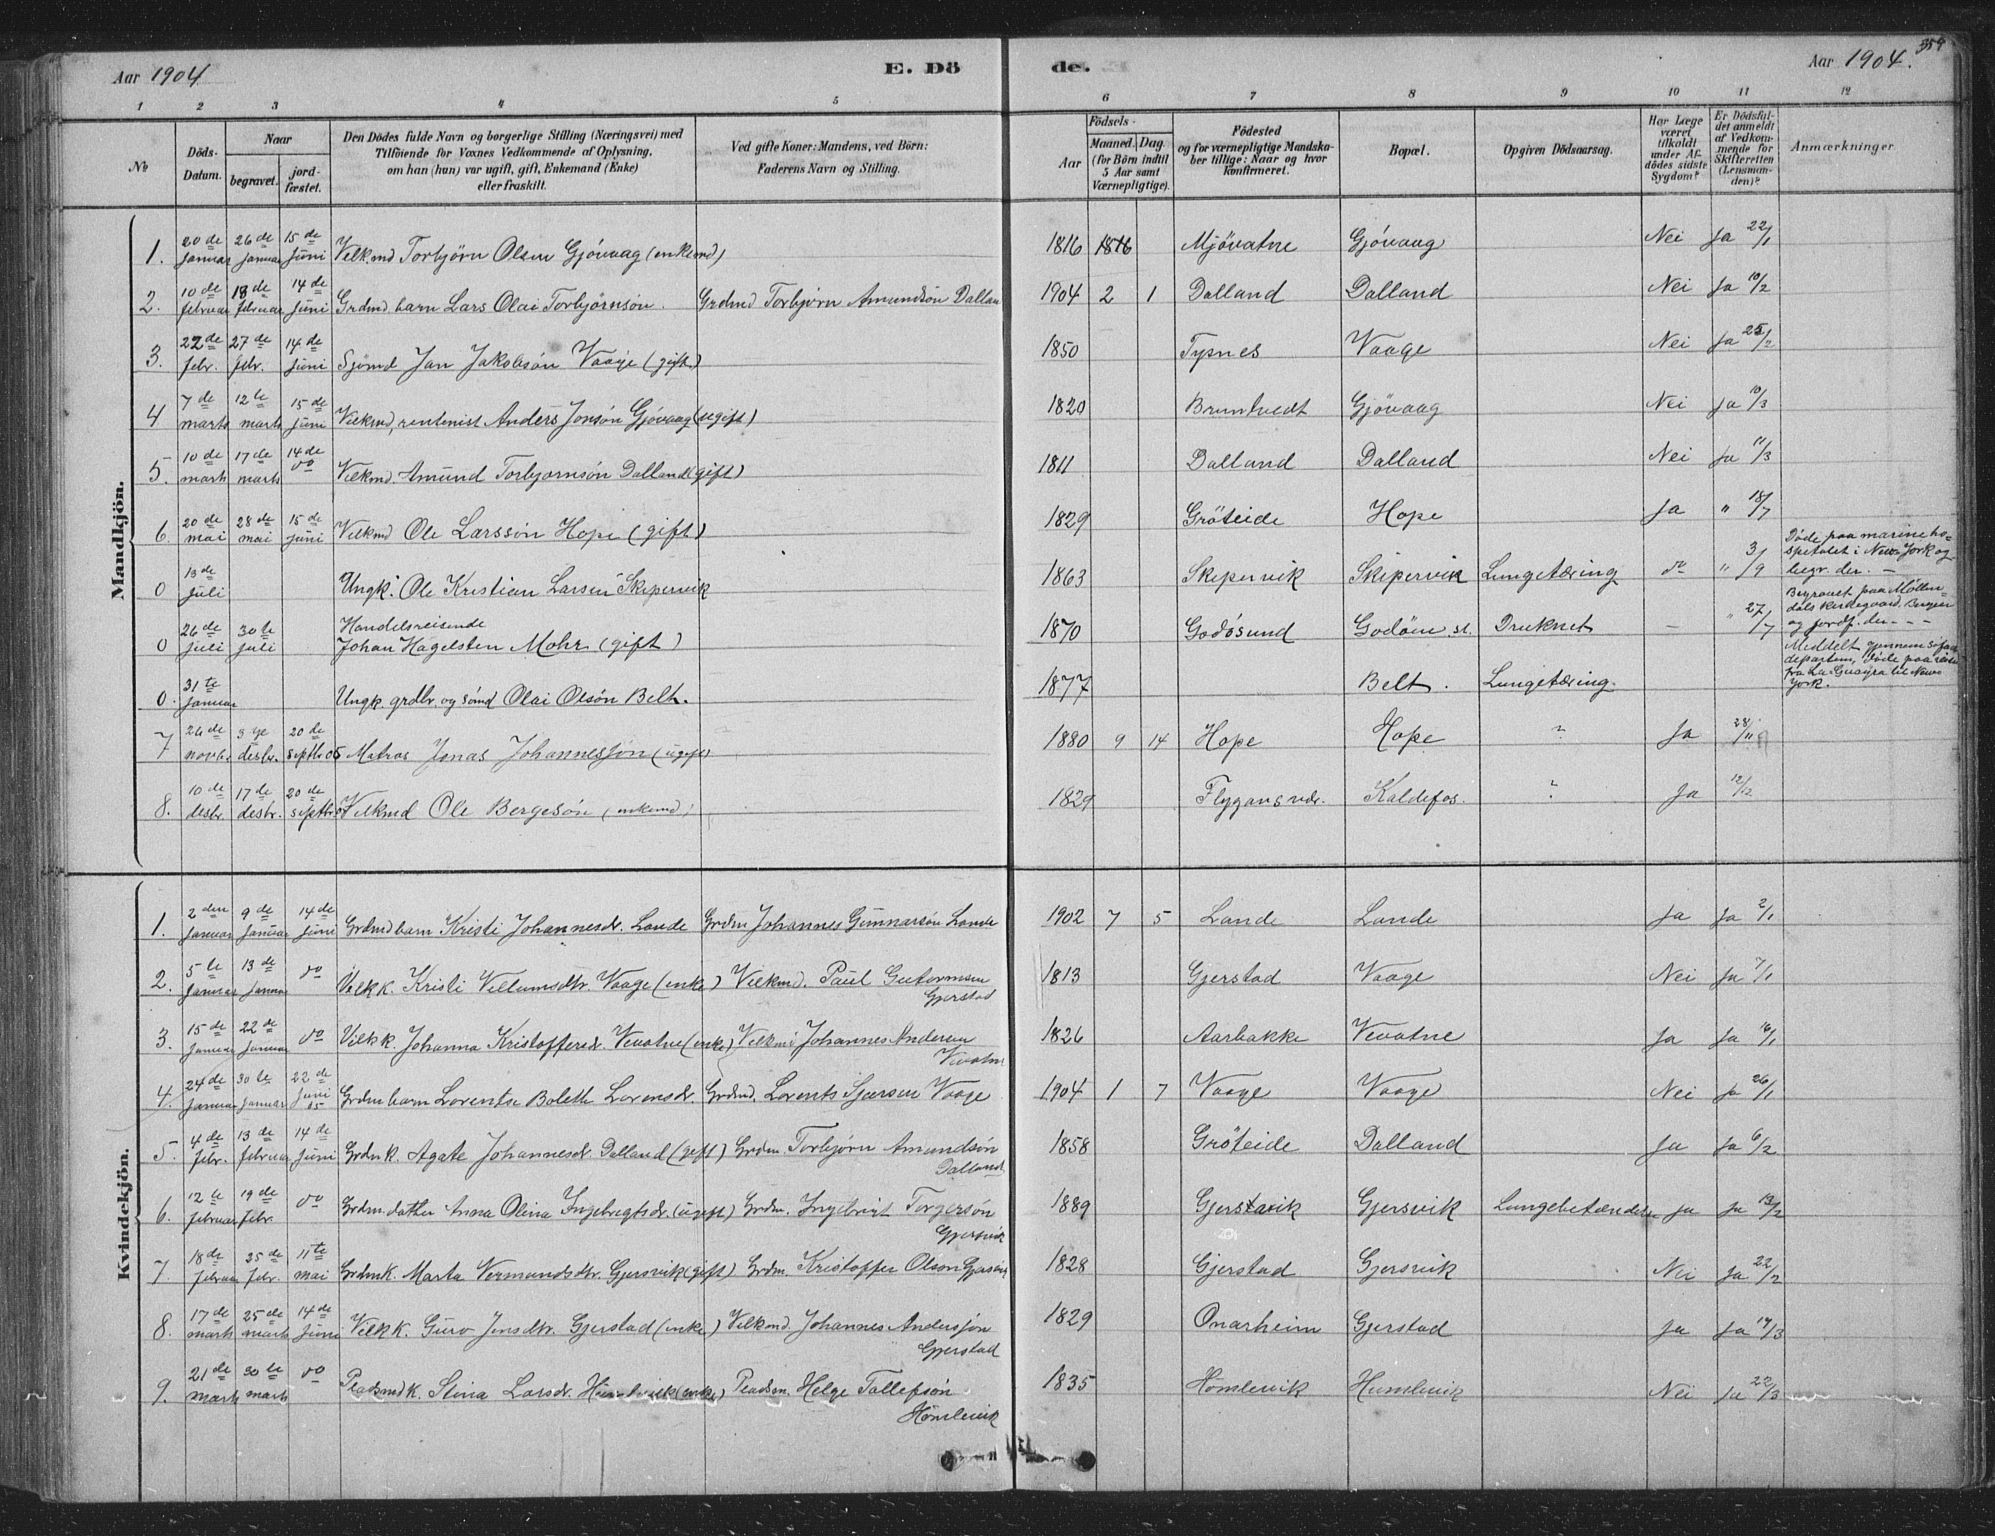 Aar 1904.
E. Dö
de.
Aar 1904.
354
1 2 3 4 5 6 7 8 9 10 11 12
No
Döds-Datum.
Naar
begravet.
jord-fæstet.
Den Dödes fulde Navn og borgerlige Stilling (Næringsvei) med
Tilföiende for Voxnes Vedkommende af Oplysning,
om han (hun) var ugift, gift, Enkemand (Enke)
eller fraskilt.
Ved gifte Koner: Mandens, ved Börn:
Faderens Navn og Stilling.
Födsels-
Aar
Maaned. Dag.
(for Börn indtil
5 Aar samt
Værnepligtige).
Födested
og for værnepligtige Mandska-
ber tillige: Naar og hvor
konfirmeret.
Bopæl.
Opgiven Dödsaarsag.
Har Læge
været
tilkaldt
under Af-
dödes sidste
Sygdom?
Er Dödsfal-
det anmeldt
af Vedkom-
mende for
Skifteretten
(Lensman-
den)?
Anmærkninger
Mandkjön.
1. 20de Januar 26de Januar 15de Juni Velk.md Torbjörn Olsen Gjövaag (enkemd) 1816 1816 Mjövatne Gjövaag Nei Ja 22/1
2. 10de februar 18de februar 14de Juni Grdmd barn Lars Olai Torbjörnsön. Grdmd Torbjörn Amundsön Dalland 1904 2 1 Dalland Dalland Nei Ja 10/2
3. 22de febr. 27de febr. 14de Juni Sjömd Jan Jakobsön Vaage (gift) 1850 Tysnes Vaage Nei Ja 25/2
4 7de marts 12te marts 15de Juni Vilkmd, rentenist Anders Jonsön Gjövaag (ugift) 1820 Bruntvedt Gjövaag Nei Ja 10/3
5. 10de marts 17de marts 14de do Vilkmd. Amund Torbjornsön Dalland (gift) 1811 Dalland Dalland Nei Ja 11/3
6. 20de mai 28de mai 15de Juni Vilkmd Ole Larssön Hope (gift) 1829 Gröteide Hope Ja " 18/7
0 13de Juli Ungk. Ole Kristian Larsen Skipervik 1863 Skipervik Skipervik Lungetæring do " 3/9 Döde paa marineho-
spetalet i New-York og
begr. der. —
0 26de Juli 30te Juli Handelsreisende
Johan Hagelsten Mohr (gift) 1870 Godösund Godöen st. Druknet — " 27/7 Begravet paa Möllen-
dals kirkegaard. Bergen
og jordf. der - - -
0. 31te Januar Ungk. grdbr. og sömd Olai Olsön Belt. 1877 Belt. Lungetæring. Meddelt gjennem
departem, döde paa reise
fra La Guayra til New-
York.
7 26de novbr. 3dje desbr. 20de septbr 05 Matros Jonas Johannessön (ugift) 1880 9 14 Hope Hope ? Ja 28/11
8. 10de desbr. 17de desbr. 20de septbr. Vilkmd Ole Bergesön (enkemd) 1829 Flygansvær. Kaldefos. ? Ja 12/12
Kvindekjön.
1. 2den Januar 9de Januar 14de Juni Grdmd barn Kristi Johannesdr. Lande Grdm Johannes Gunnarsön Lande 1902 7 5 Lande Lande Ja Ja 2/1
2. 5te Januar 13de Januar do Vilkk. Kristi Villumsdtr. Vaage (enke) Vilkmd. Paul Guttormsen
Gjerstad 1813 Gjerstad Vaage Nei Ja 7/1
3. 15de Januar 22de Januar do Vilkk. Johanna Kristoffersdr. Vevatne (enke) Vilkmd Johannes Andersen
Vevatne 1826 Aarbakke Vevatne Ja Ja 16/1
4. 24de Januar 30te Januar 22de Juni 05 Grdm barn Lorentse Bolette Lorensdr. Grdmd. Lorents Sjursen Vaage 1904 1 7 Vaage Vaage Nei Ja 26/1
5. 4de febr. 13de februar 14de Juni Grdmk. Agate Johannesdr. Dalland (gift) Grdm. Torbjörn Amundsön
Dalland 1858 Gröteide Dalland Ja Ja 6/2
6. 12te februar 19de febr. do Grdm. datter Anna Olina Ingebregtsdr. (ugift) Grdm. Ingebrigt Torgersön
Gjersvik 1889 Gjersvik Gjersvik Lungebetændelse Ja Ja 13/2
7. 18de februar 25de febr. 11te mai Grdmk. Marta Vermundsdtr. Gjersvik (gift) Grdm. Kristoffer Olson Gjersvik 1828 Gjerstad Gjersvik Nei Ja 22/2
8. 17de marts 25de marts 14de Juni Vilkk. Guro Jensdtr. Gjerstad (enke) Vilkmd. Johannes Andersön
Gjerstad 1829 Onarheim Gjerstad Ja Ja 19/3
9. 21de marts 30te marts do Pladsmdk. Stina Larsdr. Humlevik (enke) Pladsm. Helge Tollefsön
Hömlevik 1835 Hömlevik Humlevik Nei Ja 22/3